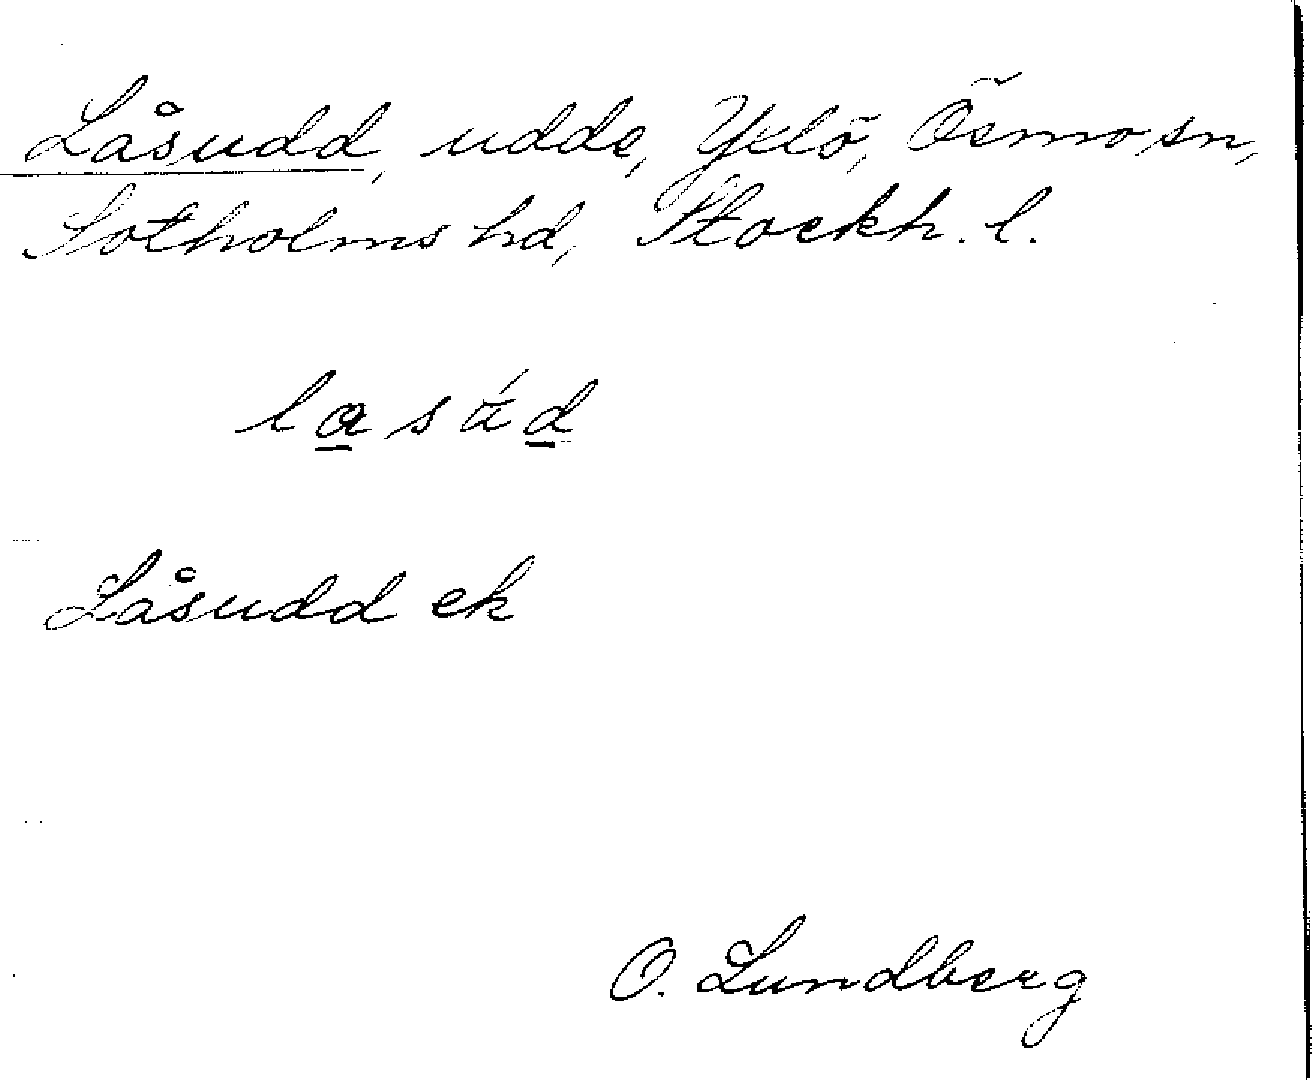 Låsudd, udde, Yxlö, Ösmo sn,
Sotholms hd, Stockh. l.
Låsudd ek
O. Lundberg